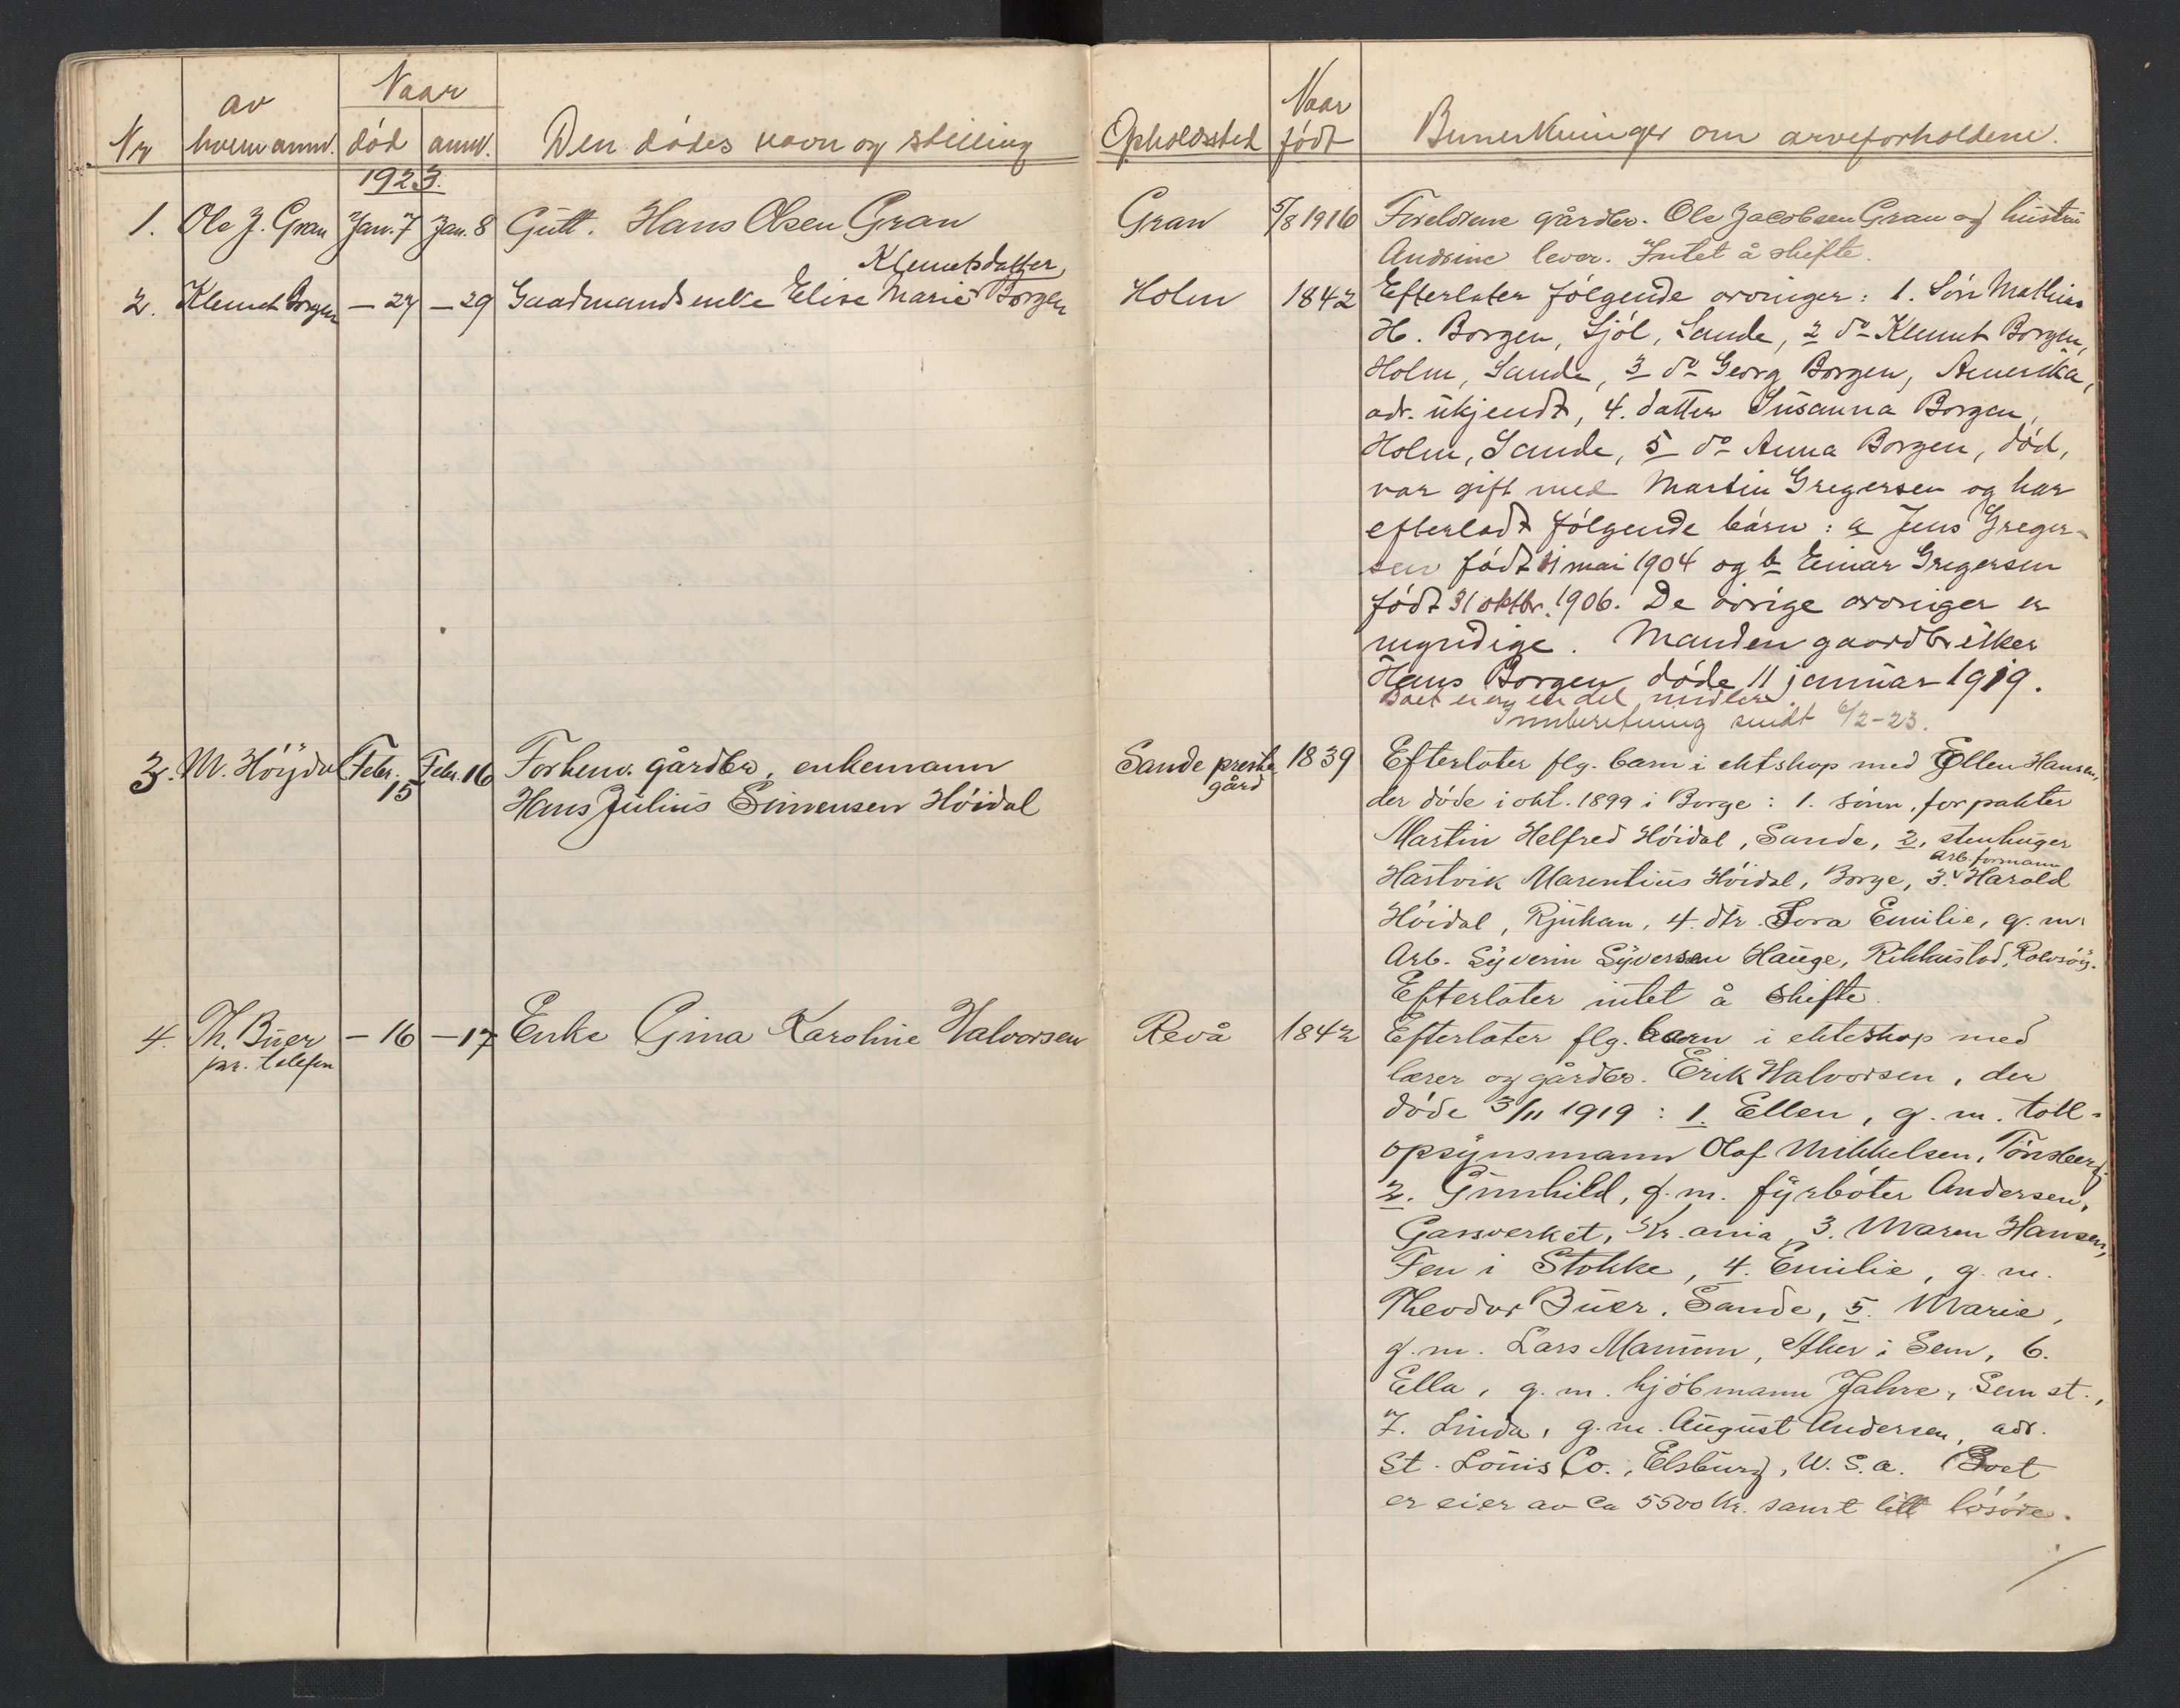 Nr
av hvem anm.
Naar
død
anm.
Den dødes navn og stilling
Opholdssted
Naar født
Bemerkninger om arveforholdene.
1923.
1. Ole J. Gran Jan. 7 Jan. 8 Gutt. Hans Olsen Gran
Gran 5/8 1916 Foreldrene gårdbr. Ole Jacobsen Gran og hustru
Andrine lever. Intet å skifte.
Klemetsdatter
2. Klemet Borgen — 27 — 29 Gaardmandsenke Elise Marie Borgen
Holm 1842 Efterlater følgende arvinger: 1. Søn Mathias
H. Borgen, Sjøl, Sande, 2 do Klemet Borgen,
Holm, Sande, 3 do Georg Borgen, Amerika,
adr. ukjendt, 4. datter Susanna Borgen,
Holm, Sande, 5 do Anna Borgen, død,
var gift med Martin Gregersen og har
efterladt følgende børn: a Jens Greger-
sen født 11 mai 1904 og b Einar Gregersen
født 31 oktbr. 1906. De øvrige arvinger er
myndige. Manden gaardbruker
Hans Borgen døde 11 januar 1919.
Boet eier en del midler.
Innberetning sendt 6/2-23.
3. M. Höydal Febr. 15 Febr. 16 Forhenv. gårdbr., enkemann
Hans Julius Simensen Höidal
Sande preste
gård
1839 Efterlater flg. barn i ektskap med Ellen Hansen,
der døde i okt. 1899 i Borge: 1. sønn, forpakter
Martin Helfred Höidal, Sande, 2, stenhuger
arb.formann
Hartvik Marentius Höidal, Borge, 3. Harald
Höidal, Rjukan, 4. dtr. Tora Emilie, g. m.
Arb. Syverin Syversen Hauge, Rikkustad, Rolvsøy.
Efterlater intet å skifte.
4. Th. Buer — 16 — 17 Enke Gina Karoline Halvorsen
pr. telefon
Revå 1842 Efterlater flg. barn i ekteskap med
lærer og gårdbr. Erik Halvorsen, der
døde 3/11 1919: 1. Ellen, g. m. toll-
opsynsmann Olaf Mikkelsen, Tönsberg,
2. Gunhild, g. m. fyrbøter Andersen,
Gassverket, Kr.ania, 3. Maren Hansen,
Fen i Stokke, 4. Emilie, g. m.
Theodor Buer, Sande, 5. Marie,
g. m. Lars Mamum, Aker i Sem, 6.
Ella, g. m. kjøbmann Jahre, Sem st.,
7. Linda, g. m. August Andersen, adr.
St. Louis Co., Elsburg, U. S. a. Boet
er eier av ca 5500 kr. samt litt løsøre.